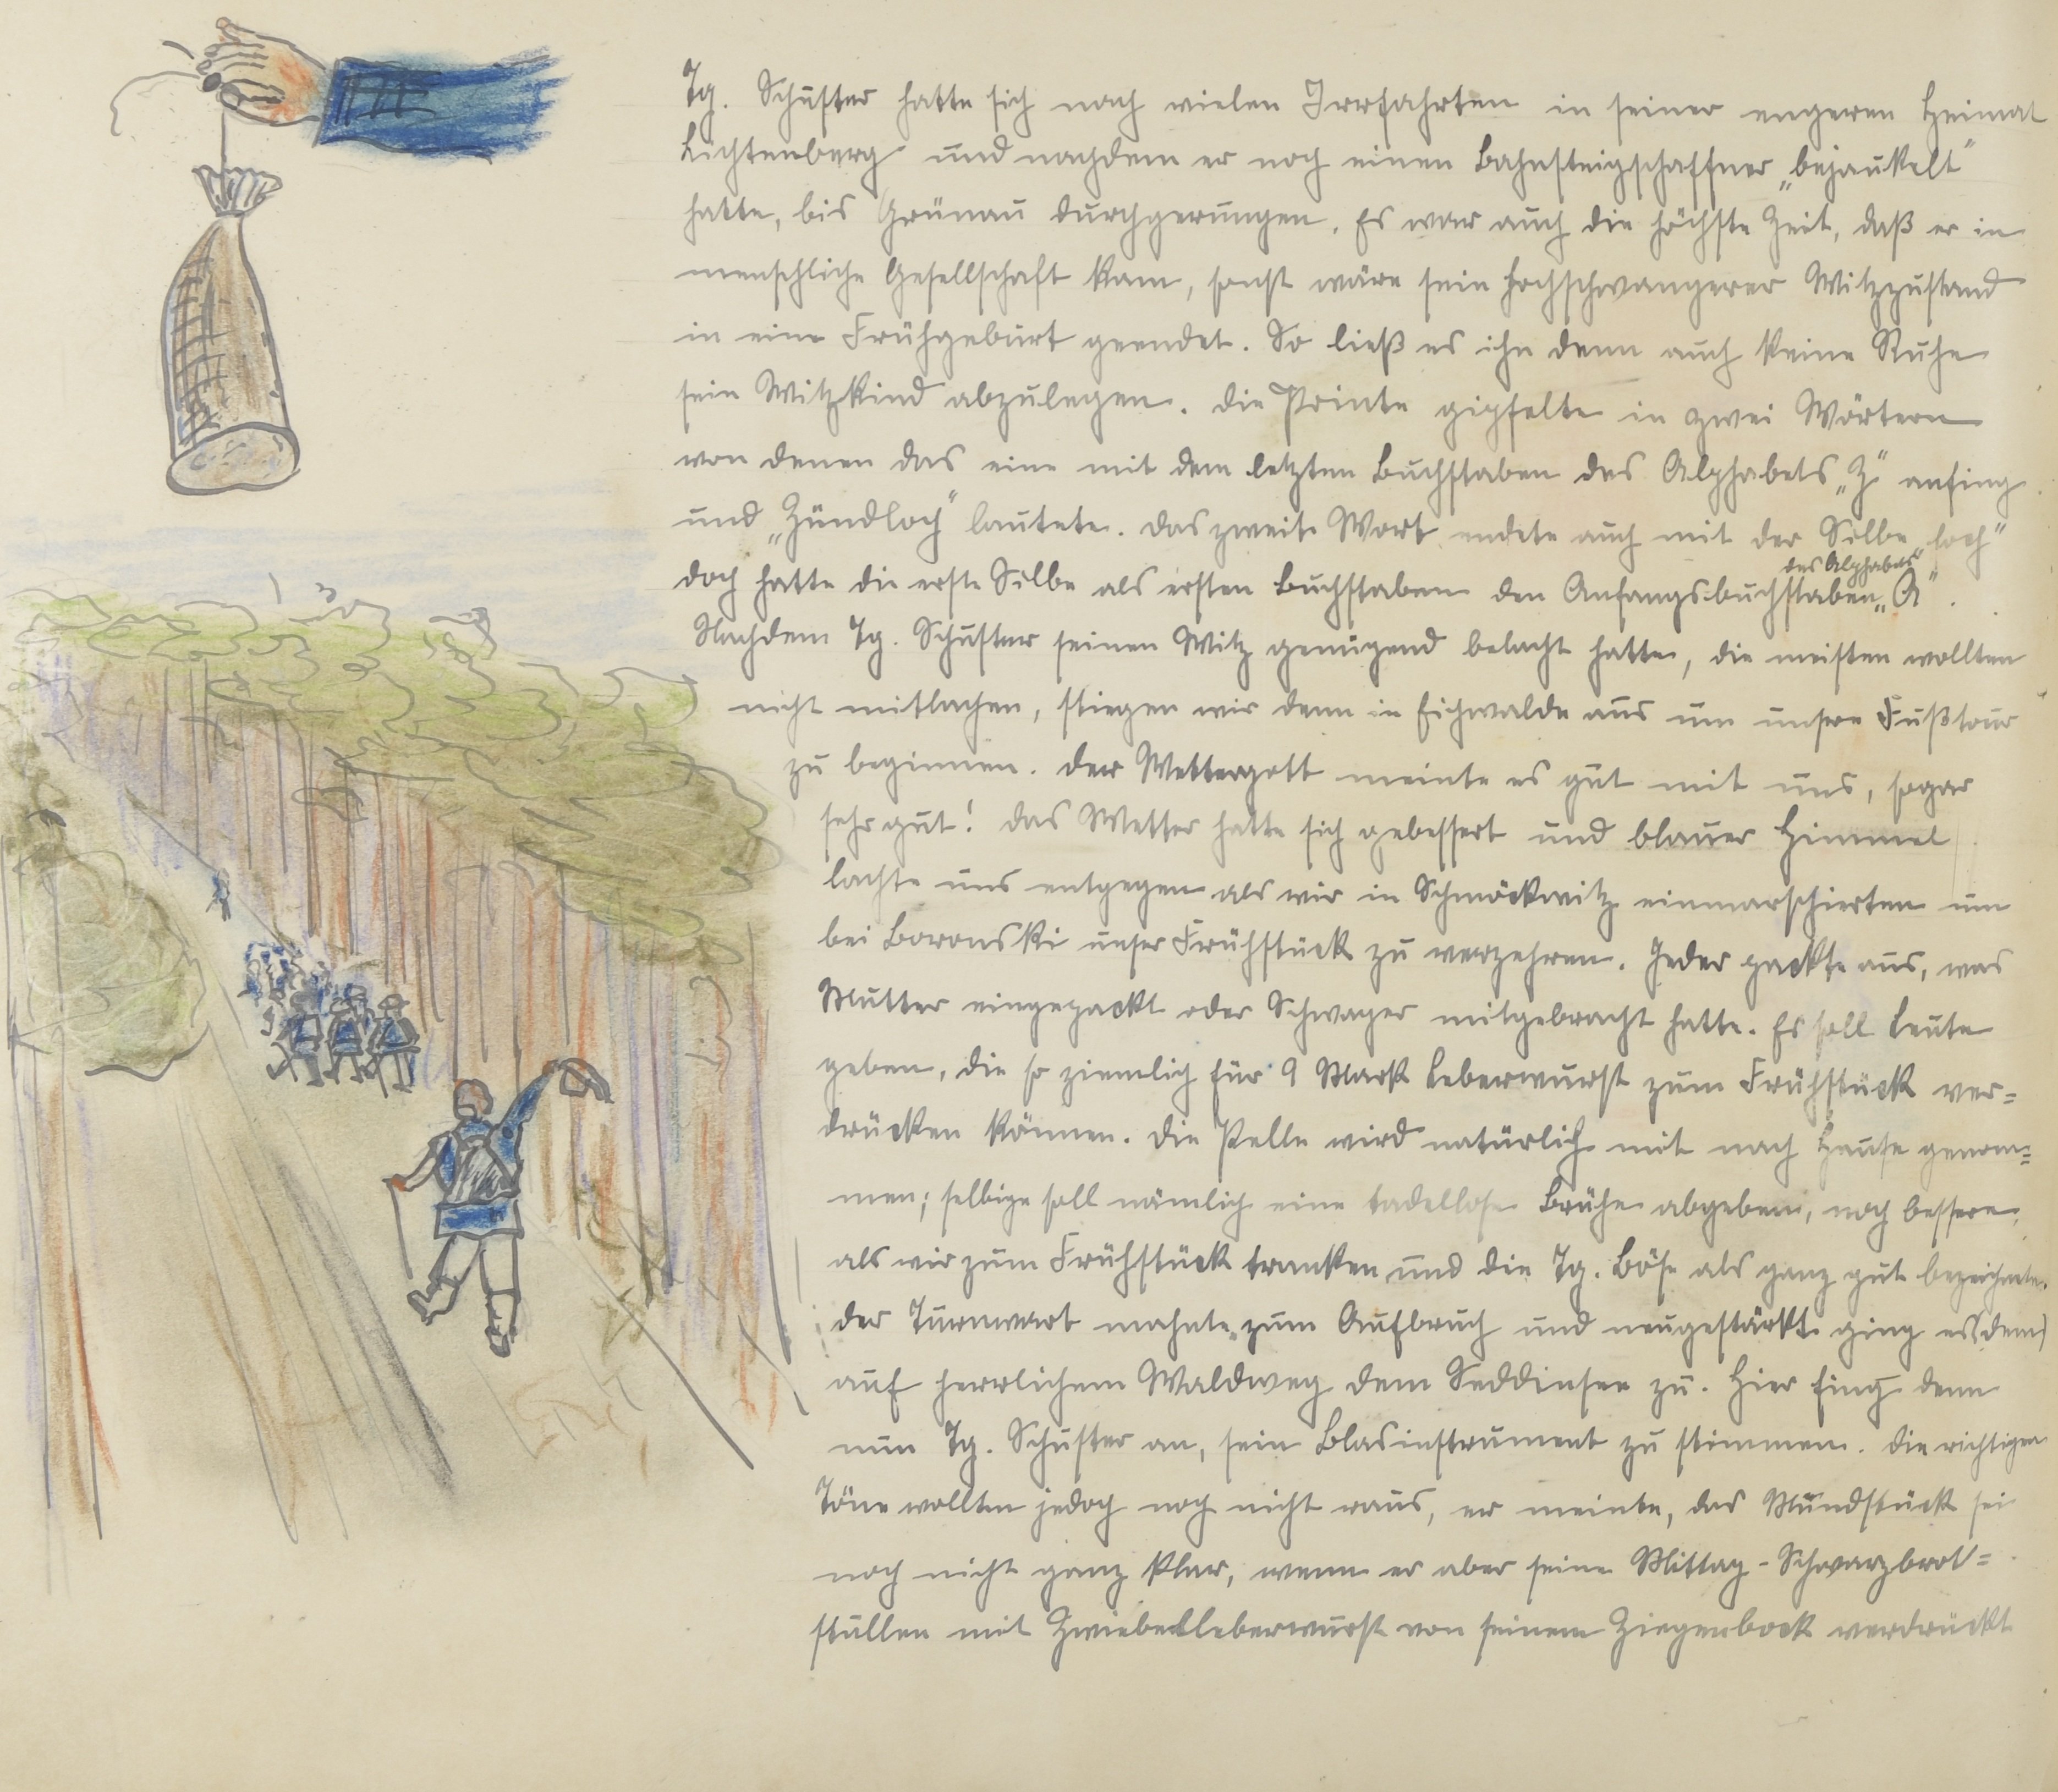 Tg. Schuster hatte sich nach vielen Irrfahrten in seiner engeren Heimat
Lichtenberg und nachdem er noch einen Bahnsteigschaffner „bejaukelt"
hatte, bis Grünau durchgerungen. Es war auch die höchste Zeit, daß er in
menschliche Gesellschaft kam, sonst wäre sein hochschwangerer Witzzustand
in eine Frühgeburt geendet. So ließ es ihn denn auch keine Ruhe
sein Witzkind abzulegen. Die Pointe gipfelte in zwei Wörtern
von denen das eine mit dem letzten Buchstaben des Alphabets „Z" anfing
und „Zündloch" lautete. Das zweite Wort endete auch mit der Silbe „loch"
des Alphabets
doch hatte die erste Silbe als ersten Buchstaben den Anfangsbuchstaben „A".
Nachdem Tg. Schuster seinen Witz genügend belacht hatte, die meisten wollten
nicht mitlachen, stiegen wir denn in Eichwalde aus um unsere Fußtour
zu beginnen. Der Wettergott meinte es gut mit uns, sogar
sehr gut! Das Wetter hatte sich gebessert und blauer Himmel
lachte uns entgegen als wir in Schmöckwitz einmarschierten um
bei Boronski unser Frühstück zu verzehren. Jeder packte aus, was
Mutter eingepackt oder Schwager mitgebracht hatte. Es soll Leute
geben, die so ziemlich für 9 Mark Leberwurst zum Frühstück ver=
drücken können. Die Pelle wird natürlich mit nach Hause genom=
men; selbige soll nämlich eine tadellose Brühe abgeben, noch bessere,
als wir zum Frühstück tranken und die Tg. Böse als ganz gut bezeichnete.
Der Turnwart mahnte zum Aufbruch und neugestärkt ging es (dem)
auf herrlichem Waldweg dem Seddinsee zu. Hier fing denn
nun Tg. Schuster an, sein Blasinstrument zu stimmen. Die richtigen
Töne wollten jedoch noch nicht raus, er meinte, das Mundstück sei
noch nicht ganz klar, wenn er aber seine Mittag-Schwarzbrot=
stullen mit Zwiebelleberwurst von seinem Ziegenbock verdrückt